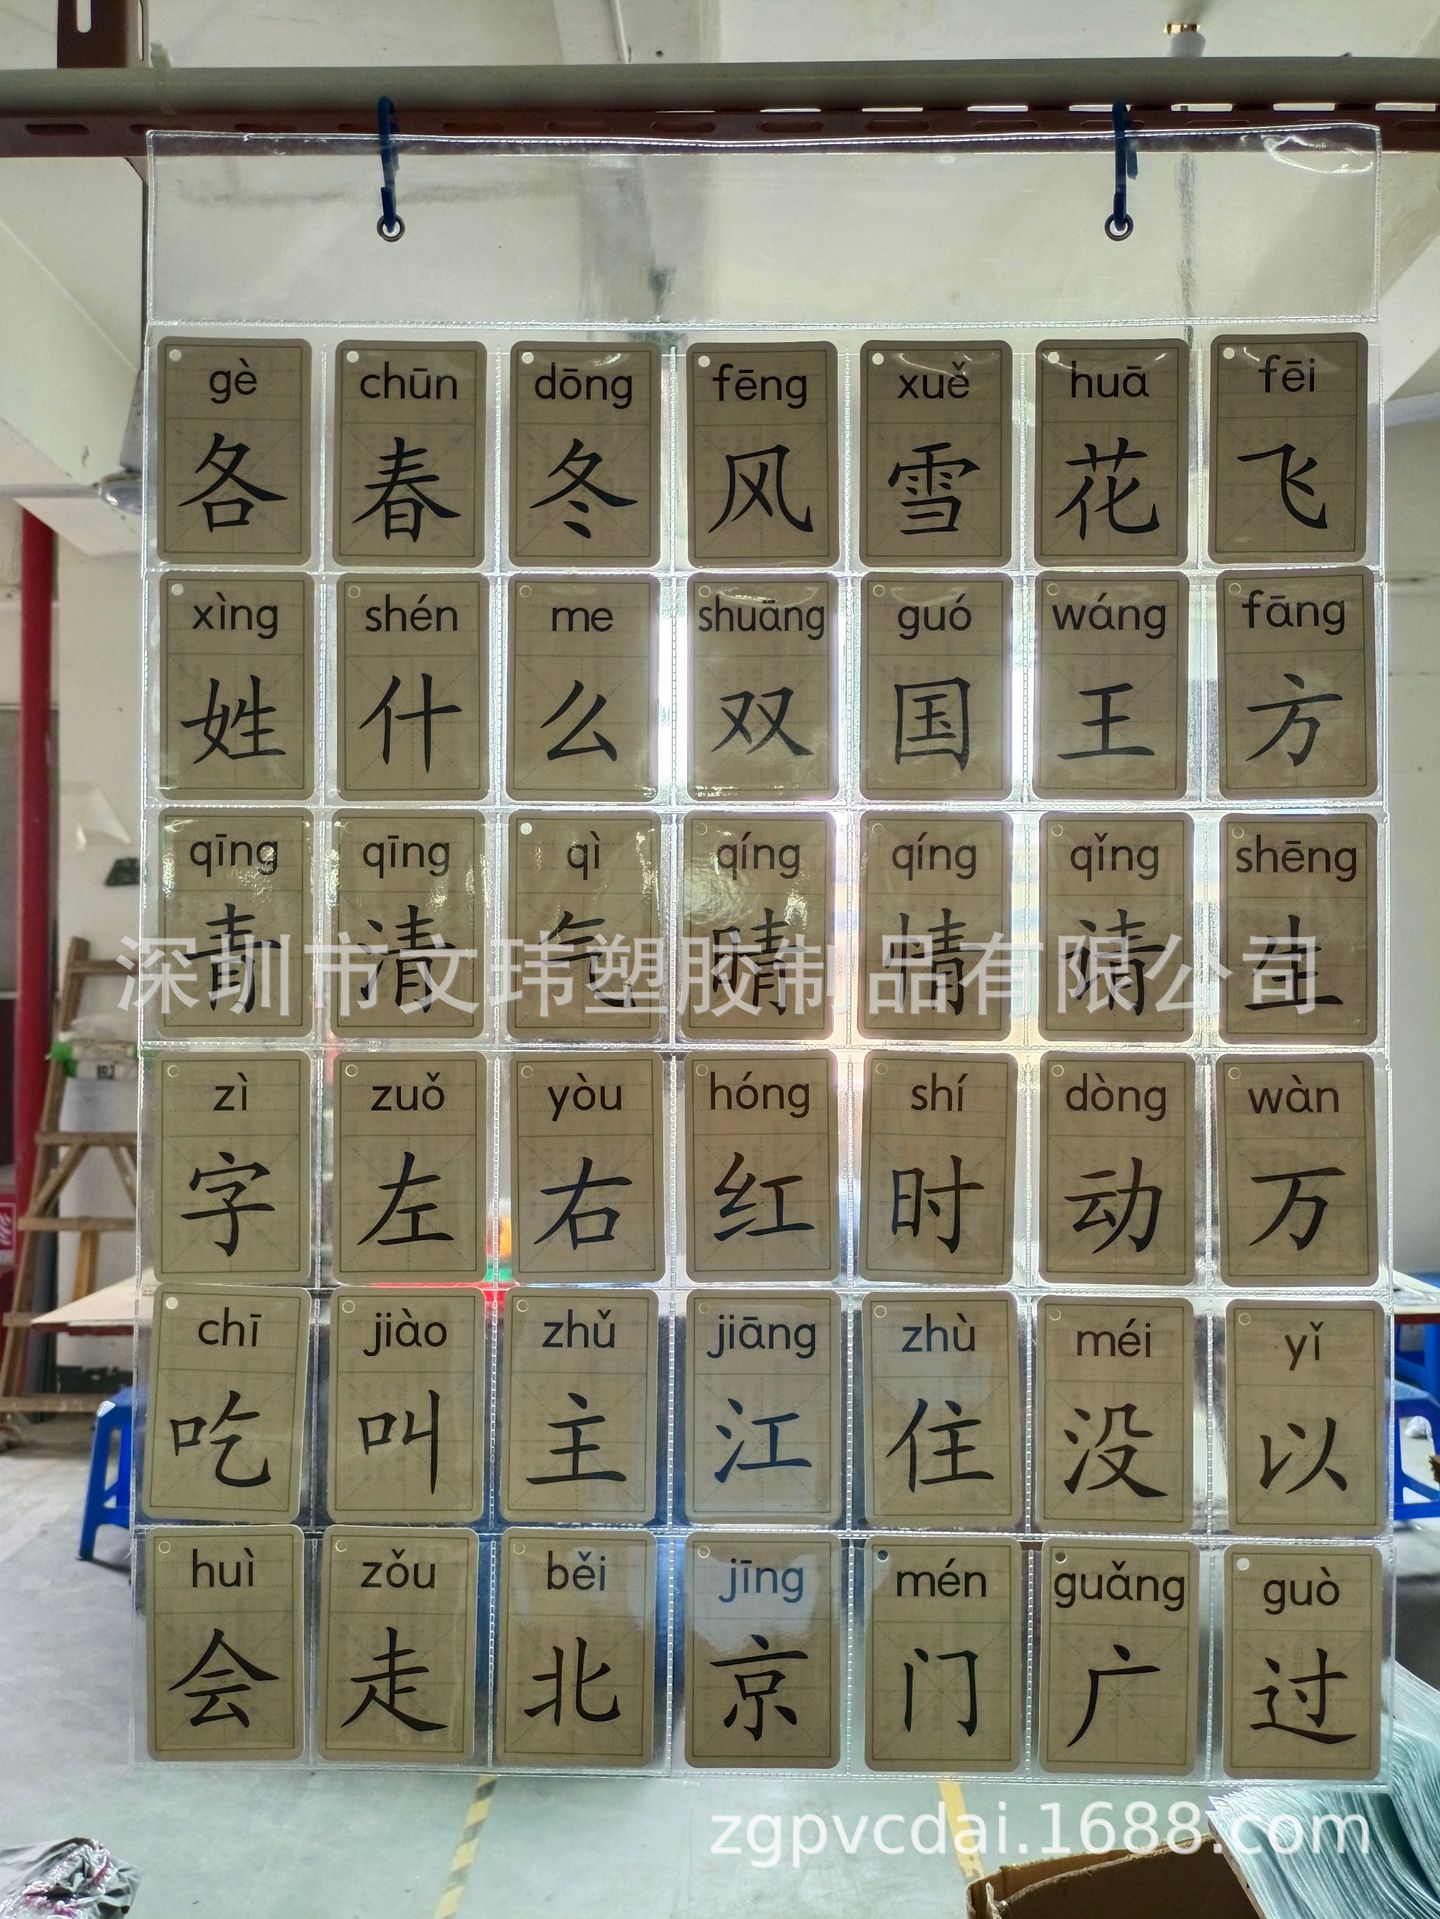 gè chūn dōng fēng xuě huā fēi
各 春 冬 风 雪 花 飞
xìng shén me shuāng guó wáng fāng
姓 什 么 双 国 王 方
qīng qīng qì qíng qíng qǐng shēng
青 清 气 晴 情 请 生
深圳市文玮塑胶制品有限公司
zì zuǒ yòu hóng shí dòng wàn
字 左 右 红 时 动 万
chī jiào zhǔ jiāng zhù méi yǐ
吃 叫 主 江 住 没 以
huì zǒu běi jīng mén guǎng guò
会 走 北 京 门 广 过
zgpvcdai.1688.com